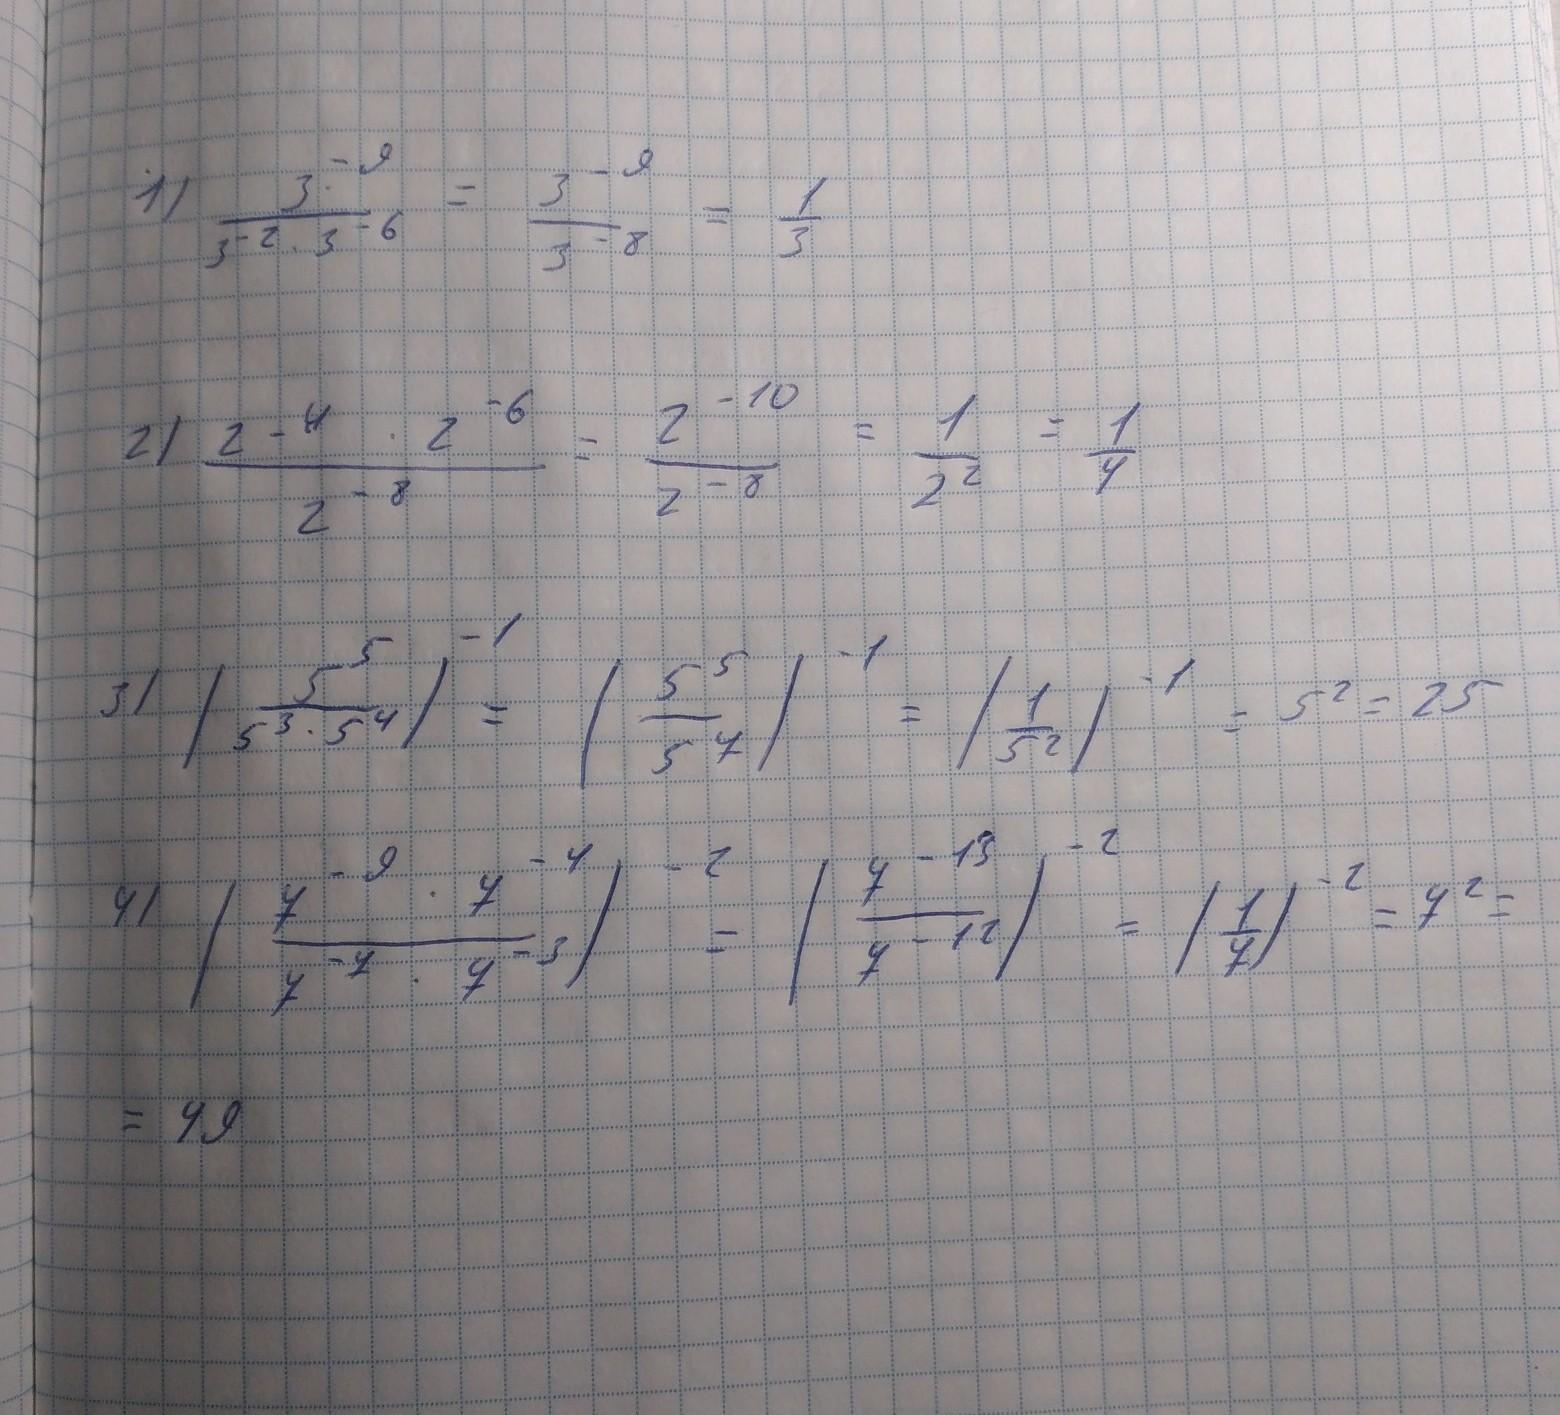 1) \frac{3^{-9}}{3^{-2} \cdot 3^{-6}} = \frac{3^{-9}}{3^{-8}} = \frac{1}{3}
2) \frac{2^{-4} \cdot 2^{-6}}{2^{-8}} = \frac{2^{-10}}{2^{-8}} = \frac{1}{2^2} = \frac{1}{4}
3) \left(\frac{5^5}{5^3 \cdot 5^4}\right)^{-1} = \left(\frac{5^5}{5^7}\right)^{-1} = \left(\frac{1}{5^2}\right)^{-1} = 5^2 = 25
4) \left(\frac{7^{-9} \cdot 7^{-4}}{7^{-7} \cdot 7^{-3}}\right)^{-2} = \left(\frac{7^{-13}}{7^{-12}}\right)^{-2} = \left(\frac{1}{7}\right)^{-2} = 7^2 =
= 49